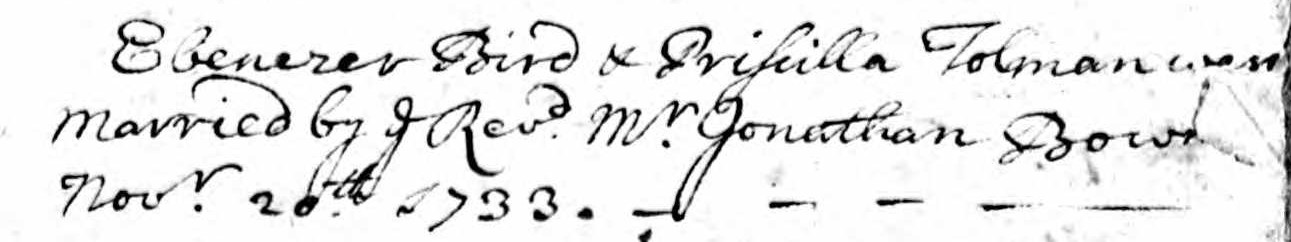 Ebenezer Bird & Priscilla Tolman were
Married by ye Revd. Mr. Jonathan Bowm
Novr. 20th. 1733. - - - -